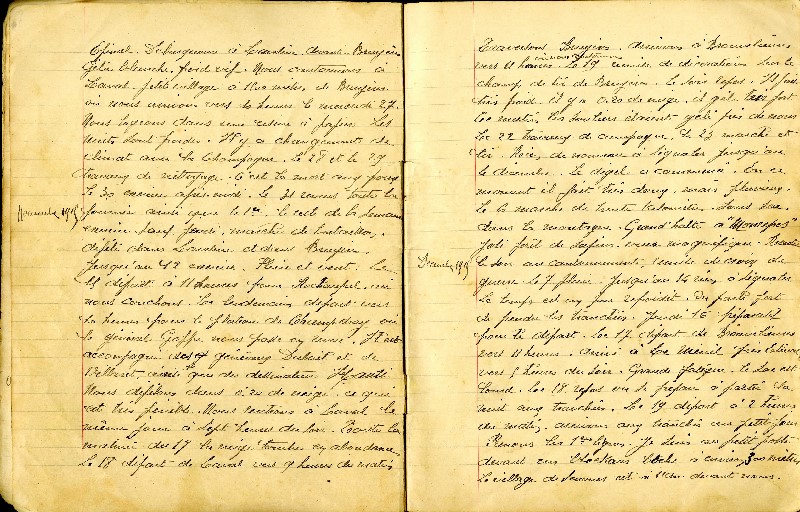 Epinal. Débarquons à Laveline devant Bruyères
Gelée blanche, froid vif. Nous cantonnons à
Laval. petit village à de Bruyères
où nous arrivons vers 10 heures le mercredi 27.
Nous logeons dans une usine à papier. Les
nuits sont froides. Il y a changement de
climat avec la Champagne. Le 28 et le 29
travaux de nettoyage. C'est la mort aux poux
le 30 exercice après midi. Le 31 repos toute la
journée ainsi que le 1er. Le reste de la semaine
Novembre 1915
exercice sauf jeudi, marche de bataillon,
défilé dans Laveline et dans Bruyères.
Jusqu'au 12 exercice. Pluie et vent. Le
départ à 11 heures pour où
nous couchons. Le lendemain départ vers
heures pour le plateau de Champdray où
le général Joffre nous passe en revue. Il est
accompagné des généraux Dubail et de
Villaret
Nous défilons dans 0.20 de neige, ce qui
est très pénible. Nous rentrons à Laval le
même jour à sept heures du soir. Toute la
matinée du 17 la neige tombe en abondance
Le 18 départ de Laval vers 9 heures du matin
Traversons Bruyères. arrivons à
vers 11 heures. Le 19 remise de décorations sur le
champ de tir de Bruyères. Le soir repos. Il fait
très froid. il y a 0.20 de neige. il gèle très fort
les matins, les souliers étaient gelés près de nous
Le 22 travaux de campagne. Le 23 marche et
tir. Rien de nouveau à signaler jusqu'au
1er décembre. Le dégel a commencé. En ce
moment il fait très doux, mais pluvieux.
Le 6 marche de trente kilomètres. Sans sac
dans la montagne. Grand'halte à
Joli forêt de sapins. vue magnifique.
Décembre 1915
le soir au cantonnement. remise de croix de
guerre. le 7 pluie. Jusqu'au 14 rien à signaler
Le temps est un peu refroidi. On parle fort
de prendre les tranchées. Jeudi 16 préparatifs
pour le départ. Le 17 départ de
vers 11 heures. arrivé à Le Ménil près
vers heures du soir. Grande fatigue. le sac est
lourd. Le 18 repos on se prépare à partir la
nuit aux tranchées. Le 19 départ à 2 heures
du matin, arrivons aux tranchées au petit jour
Prenons les 1ères lignes. Je suis au petit poste
devant un blockhaus boche à environ 300 mètres
Le village de Senones est à devant nous.